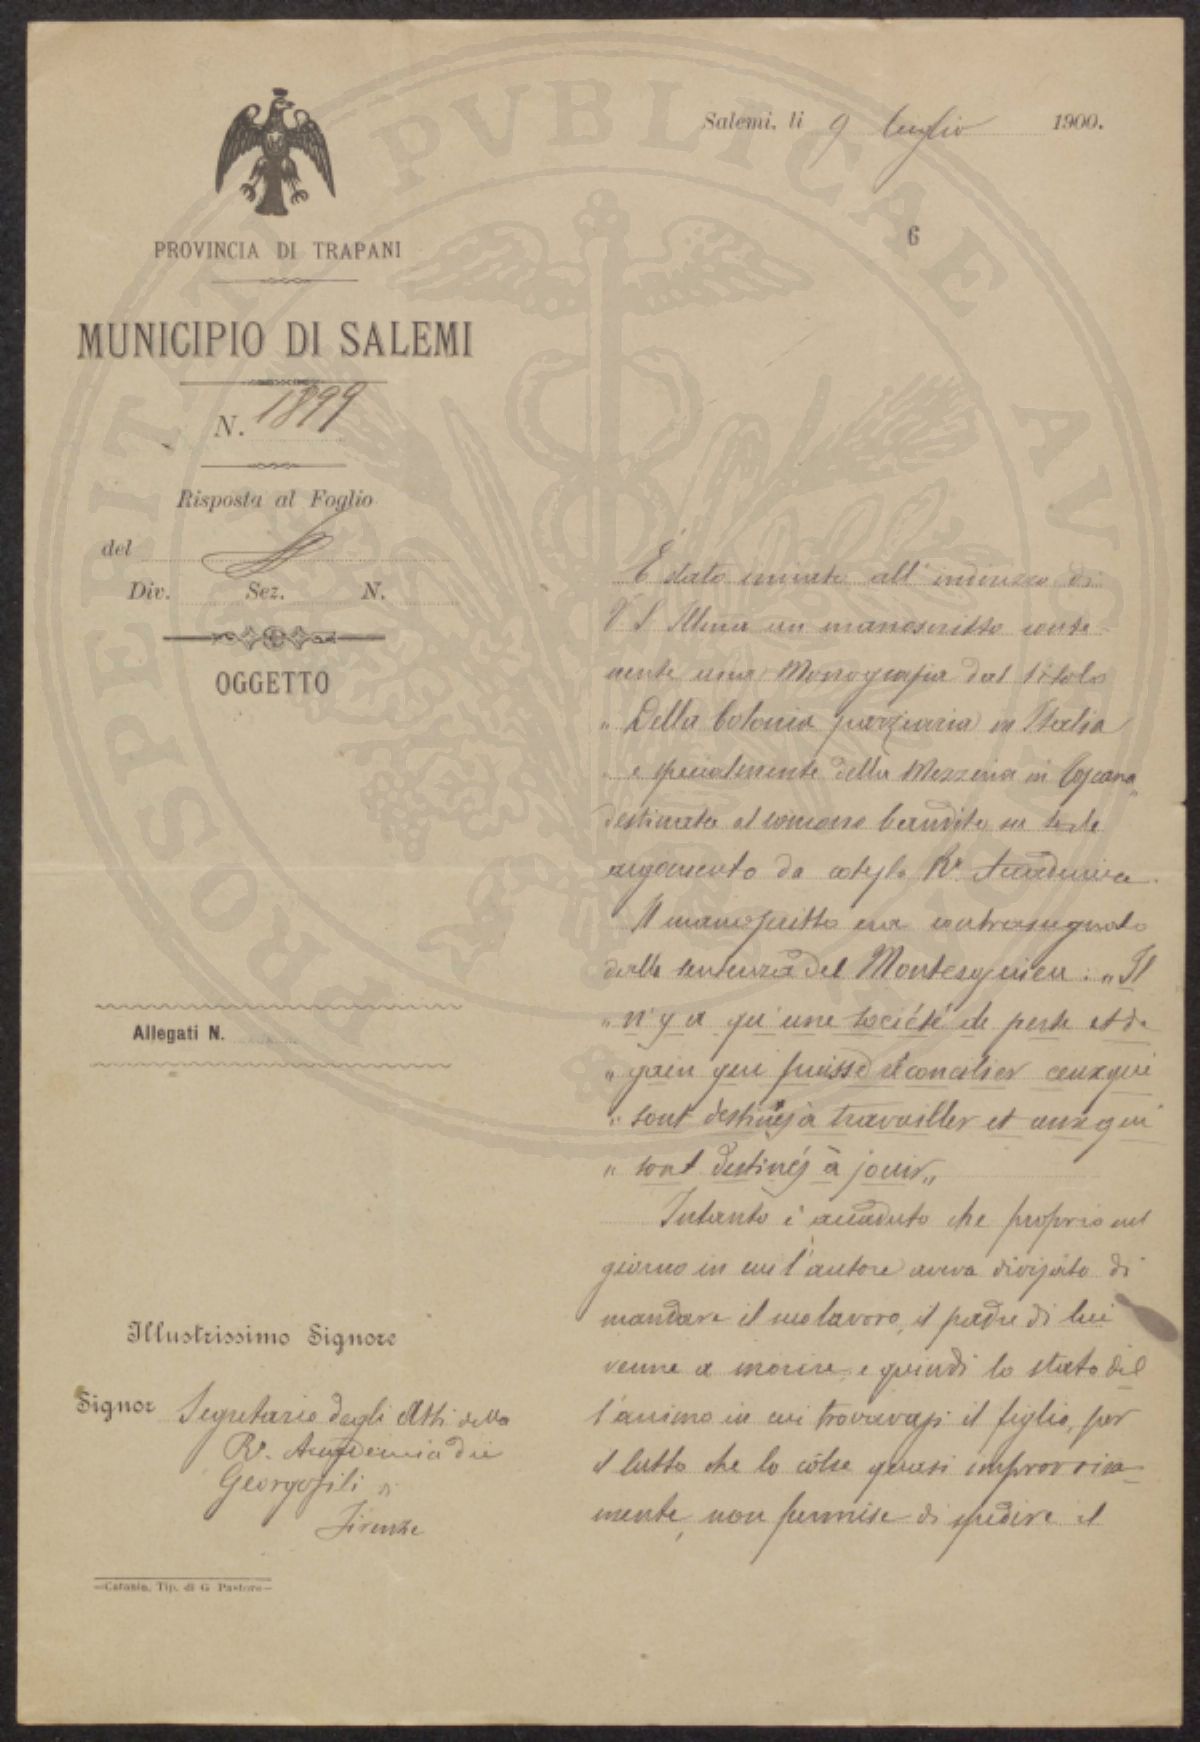 Salemi, li 9 luglio 1900.
6
PROVINCIA DI TRAPANI
MUNICIPIO DI SALEMI
N. 1899
Risposta al Foglio
del
Div. Sez. N.
OGGETTO
Allegati N.
Illustrissimo Signore
Signor Segretario degli Atti della
R.ª Accademia dei
Georgofili di
Firenze
Catania, Tip. di G. Pastore
È stato inviato all'indirizzo di
V S Illma un manoscritto conte-
nente una Monografia dal titolo
„ Della Colonia parziaria in Italia
„ e specialmente della Mezzeria in Toscana„
destinata al concorso bandito su tale
argomento da cotesta R.ª Accademia.
Il manoscritto era contrassegnato
dalla sentenza del Montesquieu: „Il
„ n'y a qu'une société de perte et de
„ gain qui puisse réconcilier ceux qui
„ sont destinés à travailler et ceux qui
„ sont destinés à jouir„
Intanto è accaduto che proprio nel
giorno in cui l'autore aveva divisato di
mandare il suo lavoro, il padre di lui
venne a morire, e quindi lo stato del
l'animo in cui trovavasi il figlio, per
il lutto che lo còlse quasi improvvisa-
mente, non permise di spedire il
PROSPERITATI PVBLICAE AVGENDAE